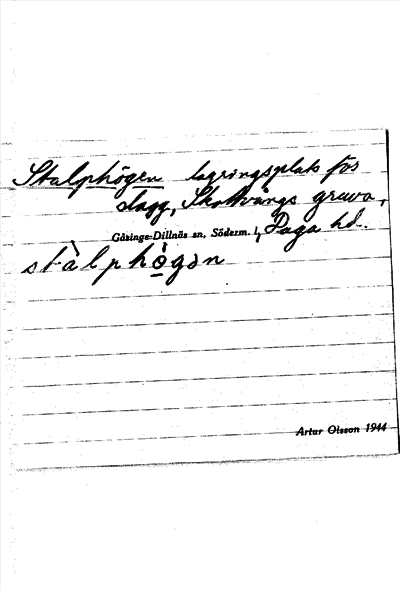 Stalphögen lagringsplats för
slagg, Skottvångs gruva,
Gåsinge-Dillnäs sn, Söderm. l., Daga hd.
stàlphö̀gən
Artur Olsson 1944